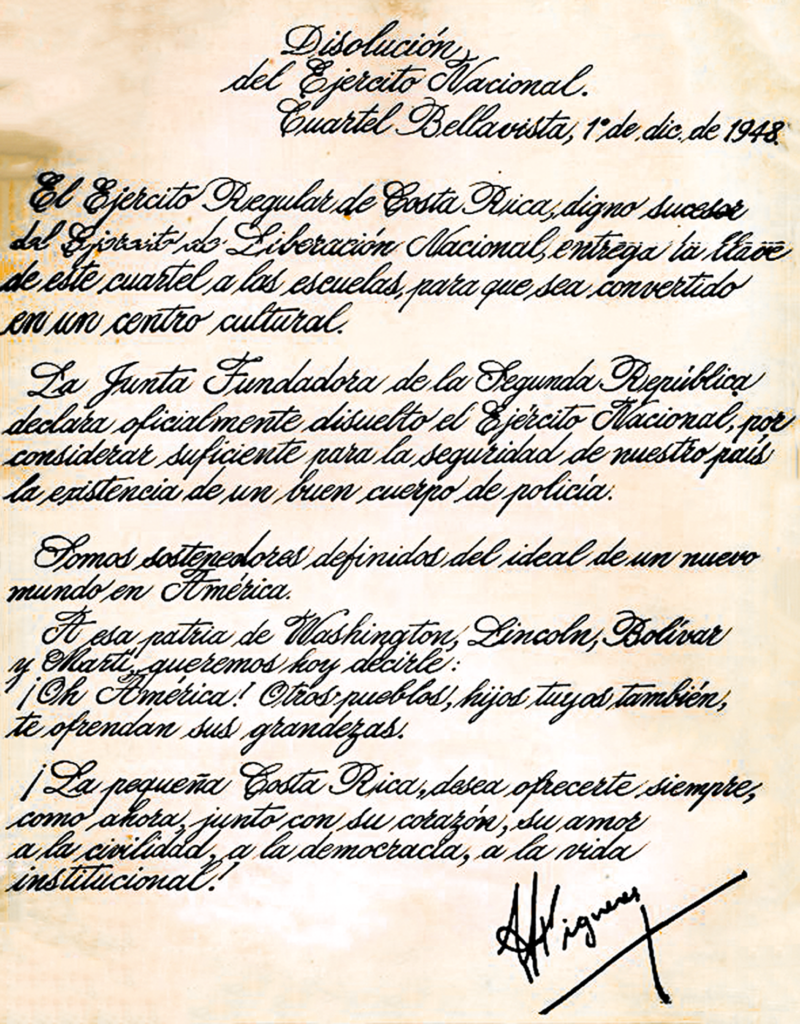 Disolución
del Ejercito Nacional.
Cuartel Bellavista, 1º de dic. de 1948.
El Ejercito Regular de Costa Rica, digno sucesor
del Ejercito de Liberación Nacional, entrega la llave
de este cuartel a las escuelas, para que sea convertido
en un centro cultural.
La Junta Fundadora de la Segunda República
declara oficialmente disuelto el Ejército Nacional, por
considerar suficiente para la seguridad de nuestro país
la existencia de un buen cuerpo de policía.
Somos sostenedores definidos del ideal de un nuevo
mundo en América.
A esa patria de Washington, Lincoln, Bolívar
y Martí, queremos hoy decirle:
¡Oh América! Otros pueblos, hijos tuyos también,
te ofrendan sus grandezas.
¡La pequeña Costa Rica, desea ofrecerte siempre,
como ahora, junto con su corazón, su amor
a la civilidad, a la democracia, a la vida
institucional!
Figueres